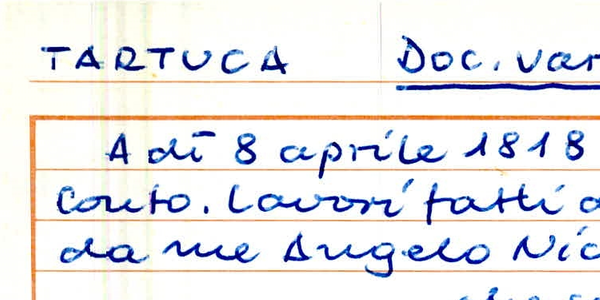 TARTUCA Doc. var
A dī 8 aprile 1818
Conto. Lavori fatti
da me Angelo Nic